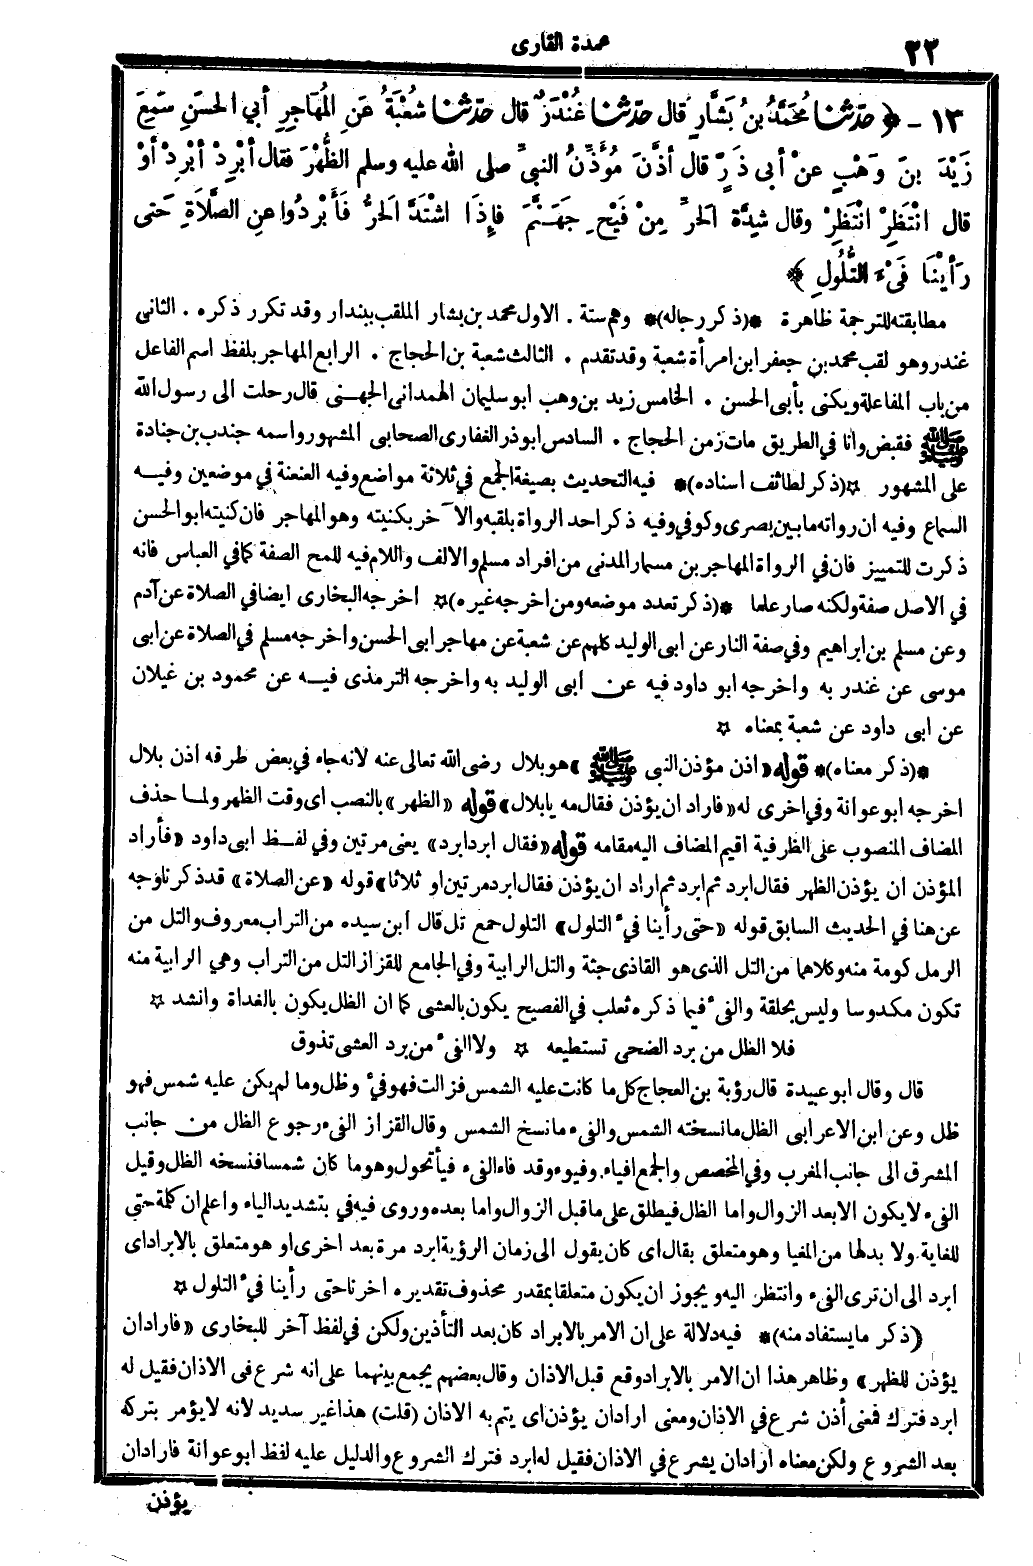 ٢٢
عمدة القارى
١٣ - ﴿ حَدَّثَنَا مُحَمَّدُ بنُ بَشَّارٍ قال حَدَّثَنَا غُنْدَرٌ قال حَدَّثَنَا شُعْبَةُ عَنِ الْمُهَاجِرِ أبي الحَسَنِ سَمِعَ
زَيْدَ بنَ وَهْبٍ عنْ أبى ذَرٍّ قال أذَّنَ مُؤَذِّنُ النبىِّ صلى الله عليه وسلم الظُّهْرَ فقال أبْرِدْ أبْرِدْ أوْ
قال انْتَظِرْ انْتَظِرْ وقال شِدَّةُ الحَرِّ مِنْ فَيْحِ جَهَنَّمَ فإِذَا اشْتَدَّ الحَرُّ فَأَبْرِدُوا عنِ الصَّلَاةِ حَتى
رَأيْنَا فَىْءَ التُّلُولِ ﴾
مطابقته للترجمة ظاهرة *(ذكر رجاله)* وهم ستة . الاول محمد بن بشار الملقب ببندار وقد تكرر ذكره . الثانى
غندر وهو لقب محمد بن جعفر ابن امرأة شعبة وقد تقدم . الثالث شعبة بن الحجاج . الرابع المهاجر بلفظ اسم الفاعل
من باب المفاعلة ويكنى بأبى الحسن . الخامس زيد بن وهب ابو سليمان الهمدانى الجهنى قال رحلت الى رسول الله
ﷺ فقبض وانا في الطريق مات زمن الحجاج . السادس ابوذر الغفارى الصحابى المشهور واسمه جندب بن جنادة
على المشهور *(ذكر لطائف اسناده)* فيه التحديث بصيغة الجمع في ثلاثة مواضع وفيه العنعنة في موضعين وفيه
السماع وفيه ان رواته ما بين بصرى وكوفي وفيه ذكر احد الرواة بلقبه والآخر بكنيته وهو المهاجر فان كنيته ابو الحسن
ذكرت للتمييز فان في الرواة المهاجر بن مسمار المدنى من افراد مسلم والالف واللام فيه للمح الصفة كما في العباس فانه
في الاصل صفة ولكنه صار علما *(ذكر تعدد موضعه ومن اخرجه غيره)* اخرجه البخارى ايضا في الصلاة عن آدم
وعن مسلم بن ابراهيم وفي صفة النار عن ابى الوليد كلهم عن شعبة عن مهاجر ابى الحسن واخرجه مسلم في الصلاة عن ابى
موسى عن غندر به واخرجه ابو داود فيه عن ابى الوليد به واخرجه الترمذى فيه عن محمود بن غيلان
عن ابى داود عن شعبة بمعناه *
*(ذكر معناه)* قوله «اذن مؤذن النبى ﷺ» هو بلال رضى الله تعالى عنه لانه جاء في بعض طرقه اذن بلال
اخرجه ابو عوانة وفي اخرى له «فاراد ان يؤذن فقال مه يابلال» قوله «الظهر» بالنصب اى وقت الظهر ولما حذف
المضاف المنصوب على الظرفية اقيم المضاف اليه مقامه قوله «فقال ابرد ابرد» يعنى مرتين وفي لفظ ابى داود «فأراد
المؤذن ان يؤذن الظهر فقال ابرد ثم ابرد ثم اراد ان يؤذن فقال ابرد مرتين او ثلاثا» قوله «عن الصلاة» قد ذكرنا وجه
عن هنا في الحديث السابق قوله «حتى رأينا فىء التلول» التلول جمع تل قال ابن سيده من التراب معروف والتل من
الرمل كومة منه وكلاهما من التل الذى هو القاء ذى جثة والتل الرابية وفي الجامع للقزاز التل من التراب وهي الرابية منه
تكون مكدوسا وليس بخلقة والفىء فيما ذكره ثعلب في الفصيح يكون بالعشى كما ان الظل يكون بالغداة وانشد *
فلا الظل من برد الضحى تستطيعه * ولا الفىء من برد العشى تذوق
قال وقال ابو عبيدة قال رؤبة بن العجاج كل ما كانت عليه الشمس فزالت فهو فىء وظل وما لم يكن عليه شمس فهو
ظل وعن ابن الاعرابى الظل ما نسخته الشمس والفىء ما نسخ الشمس وقال القزاز الفىء رجوع الظل من جانب
المشرق الى جانب المغرب وفي المخصص والجمع افياء وفيوء وقد فاء الفىء فيأ تحول وهو ما كان شمسا فنسخه الظل وقيل
الفىء لا يكون الا بعد الزوال واما الظل فيطلق على ما قبل الزوال واما بعده وروى فيه في بتشديد الياء واعلم ان كلمة حتى
للغاية ولا بد لها من المغيا وهو متعلق بقال اى كان يقول الى زمان الرؤية ابرد مرة بعد اخرى او هو متعلق بالابراد اى
ابرد الى ان ترى الفىء وانتظر اليه ويجوز ان يكون متعلقا بمقدر محذوف تقديره اخرنا حتى رأينا فىء التلول *
(ذكر ما يستفاد منه)* فيه دلالة على ان الامر بالابراد كان بعد التأذين ولكن في لفظ آخر للبخارى «فاراد ان
يؤذن للظهر» وظاهر هذا ان الامر بالابراد وقع قبل الاذان وقال بعضهم يجمع بينهما على انه شرع في الاذان فقيل له
ابرد فترك فمعنى أذن شرع في الاذان ومعنى اراد ان يؤذن اى يتم به الاذان (قلت) هذا غير سديد لانه لا يؤمر بتركه
بعد الشروع ولكن معناه اراد ان يشرع في الاذان فقيل له ابرد فترك الشروع والدليل عليه لفظ ابو عوانة فاراد ان
يؤذن